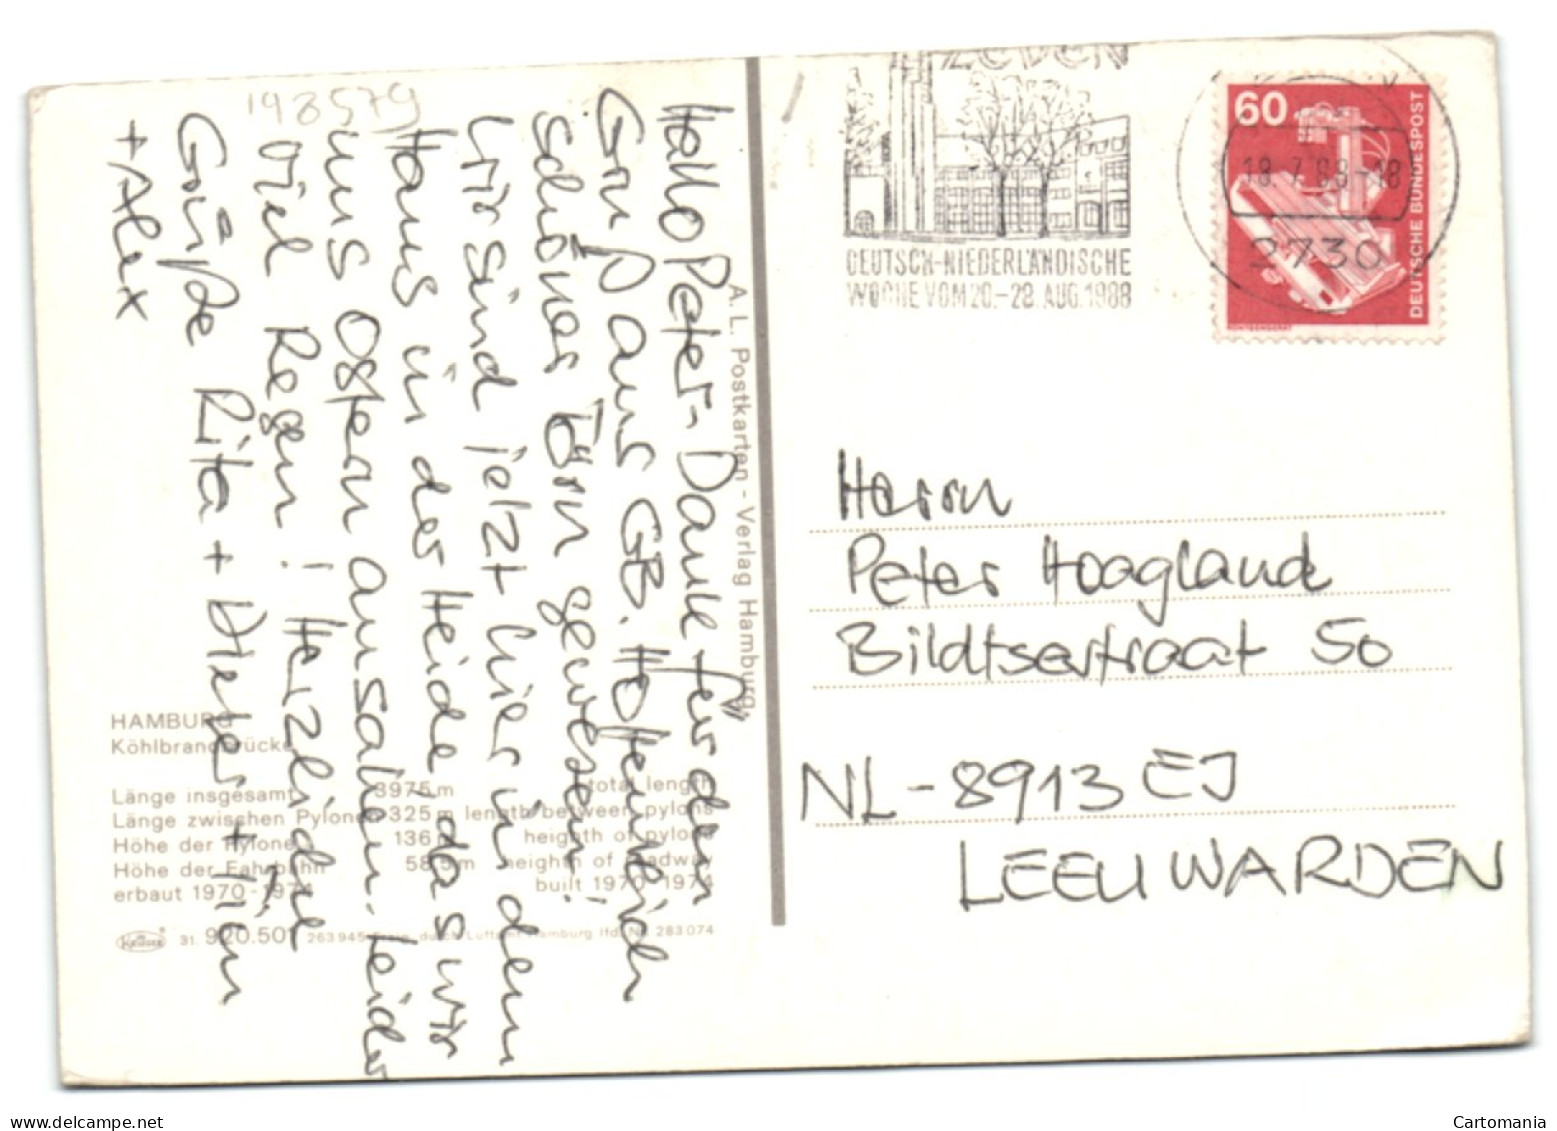 198579
Hallo Peter - Dank für den
Gruß aus GB. Hoffentlich
schöner Törn gewesen!
Wir sind jetzt hier in dem
Haus in der Heide, das wir
uns Ostern ansahen. Leider
viel Regen! Herzliche
Grüße Rita + Dieter + Tim
+ Alex
HAMBURG
Köhlbrandbrücke
Länge insgesamt 3975 m total length
Länge zwischen Pylonen 325 m length between pylons
Höhe der Pylone 136 heighth of pylons
Höhe der Fahrbahn 58,5 m heighth of roadway
erbaut 1970-1974 built 1970-1974
KRÜGER 31. 920.501 263945 Freig. durch Luftamt Hamburg lfd. Nr. 283074
A. L. Postkarten - Verlag Hamburg
ZEVEN
DEUTSCH-NIEDERLÄNDISCHE
WOCHE VOM 20.-28. AUG. 1988
60
DEUTSCHE BUNDESPOST
18.-7.88-18
2730
v
Herrn
Peter Hoagland
Bildtsestraat 50
NL-8913 EJ
LEEUWARDEN
Cartomania
delcampe.net